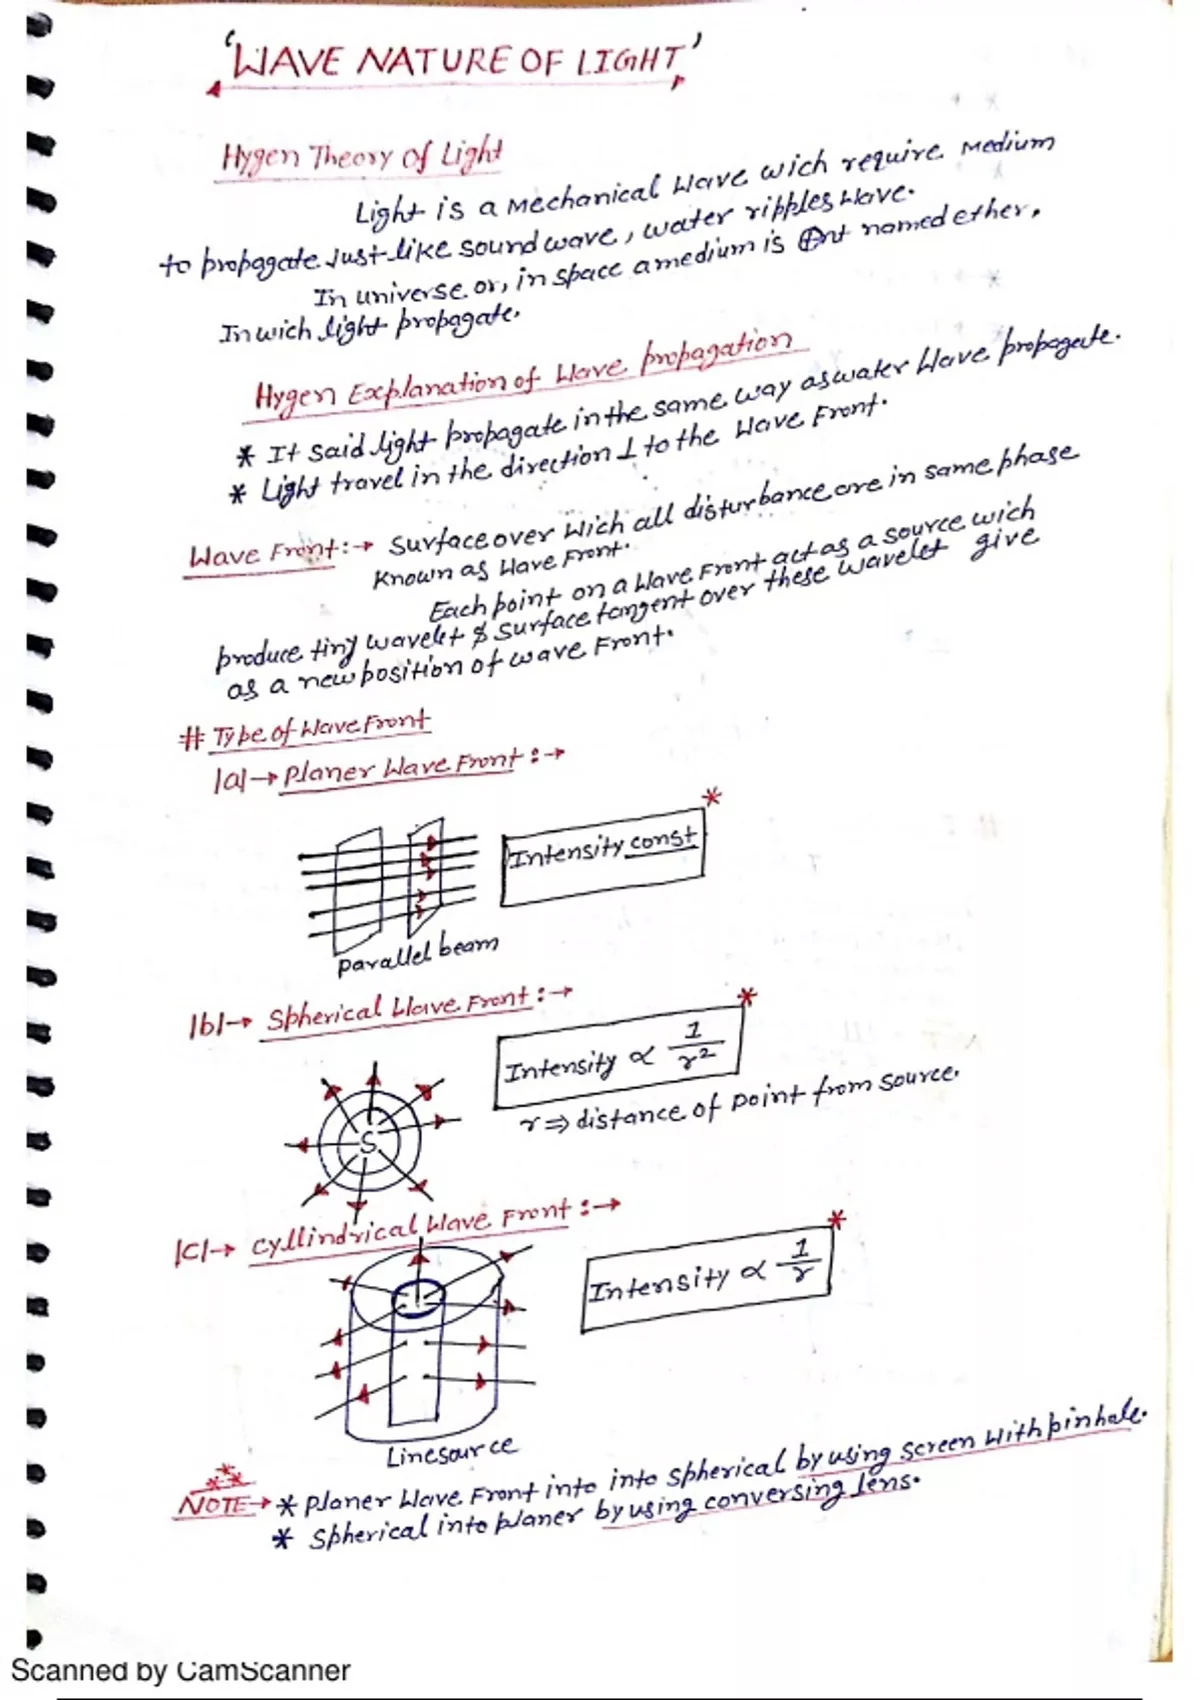 'WAVE NATURE OF LIGHT'
Hygen Theory of Light
Light is a Mechanical Wave wich require Medium
to propagate Just like sound wave, water ripples wave.
In universe or, in space a medium is named ether,
In wich light propagate.
Hygen Explanation of Wave propagation
* It said light propagate in the same way as water Wave propagate.
* Light travel in the direction ⊥ to the Wave Front.
Wave Front:→ Surface over Wich all disturbance are in same phase
Known as Wave Front.
Each point on a Wave Front act as a source wich
produce tiny wavelet & surface tangent over these wavelet give
as a new position of wave Front.
# Type of Wave Front
|a|→ Planer Wave Front :→
Intensity const *
Parallel beam
|b|→ Spherical Wave Front :→
Intensity ∝ 1/r² *
r ⇒ distance of point from source.
S
|c|→ Cyllindrical Wave Front :→
Intensity ∝ 1/r *
Linesource
NOTE→ * Planer Wave Front into into spherical by using screen With pinhale.
* Spherical into planer by using conversing lens.
Scanned by CamScanner